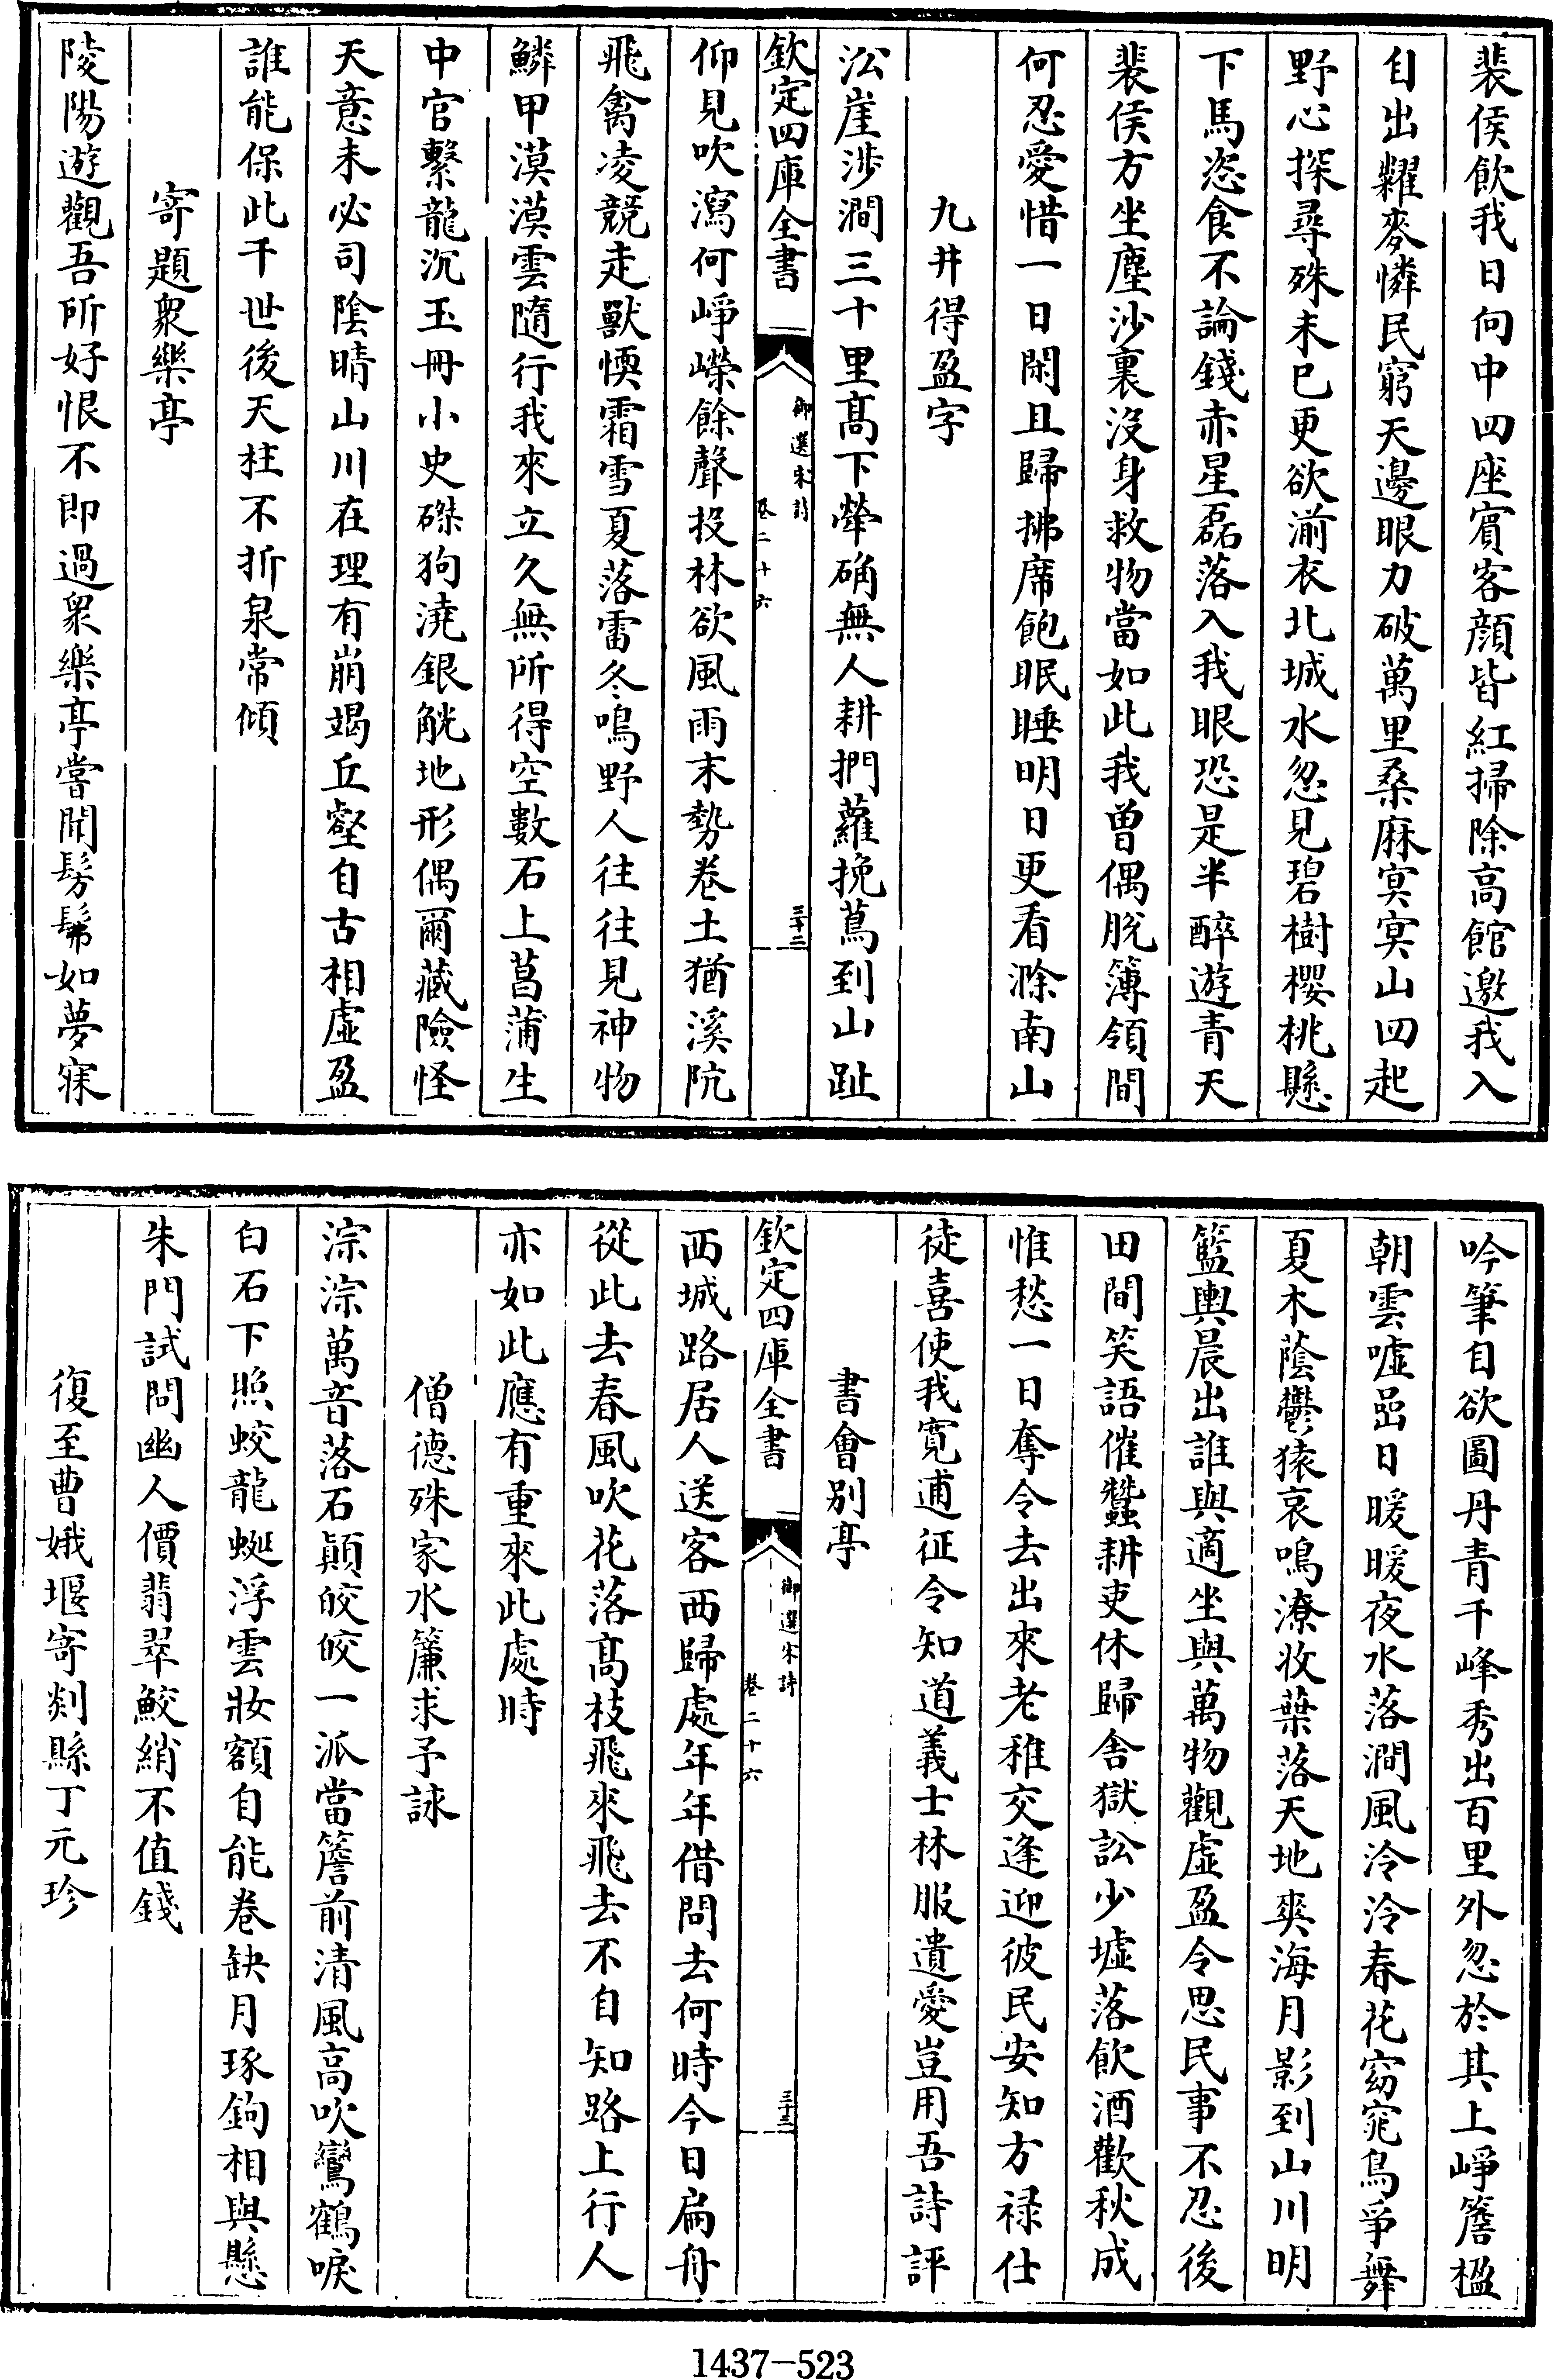 裴侯飲我日向中四座賓客顔皆紅掃除高館邀我入
自出糶麥憐民窮天邊眼力破萬里桑麻冥冥山四起
野心探尋殊未已更欲湔衣北城水忽見碧樹櫻桃懸
下馬恣食不論錢赤星磊落入我眼恐是半醉遊青天
裴侯方坐塵沙裏沒身救物當如此我曾偶脫簿領間
何忍愛惜一日閑且歸拂席飽眠睡明日更看滁南山
九井得盈字
沿崖涉澗三十里高下犖确無人耕捫蘿挽蔦到山趾
欽定四庫全書
御選宋詩
卷二十六
三十二
仰見吹瀉何崢嶸餘聲投林欲風雨末勢卷土猶溪阬
飛禽凌競走獸慄霜雪夏落雷冬鳴野人往往見神物
鱗甲漠漠雲隨行我來立久無所得空數石上菖蒲生
中官繫龍沉玉冊小史磔狗澆銀觥地形偶爾藏險怪
天意未必司陰晴山川在理有崩竭丘壑自古相虛盈
誰能保此千世後天柱不折泉常傾
寄題衆樂亭
陵陽遊觀吾所好恨不即過衆樂亭嘗聞髣髴如夢寐
吟筆自欲圖丹青千峰秀出百里外忽於其上崢簷楹
朝雲噓嵒日暖暖夜水落澗風泠泠春花窈窕鳥爭舞
夏木蔭鬱猿哀鳴潦收葉落天地爽海月影到山川明
籃輿晨出誰與適坐與萬物觀虛盈令思民事不忍後
田間笑語催蠶耕吏休歸舍獄訟少墟落飲酒歡秋成
惟愁一日奪令去出來老稚交逢迎彼民安知方祿仕
徒喜使我寛逋征令知道義士林服遺愛豈用吾詩評
書會別亭
欽定四庫全書
御選宋詩
卷二十六
三十三
西城路居人送客西歸處年年借問去何時今日扁舟
從此去春風吹花落高枝飛來飛去不自知路上行人
亦如此應有重來此處時
僧德殊家水簾求予詠
淙淙萬音落石顛皎皎一派當簷前清風高吹鸞鶴唳
白石下照蛟龍蜒浮雲妝額自能卷缺月琢鉤相與懸
朱門試問幽人價翡翠鮫綃不值錢
復至曹娥堰寄剡縣丁元珍
1437-523